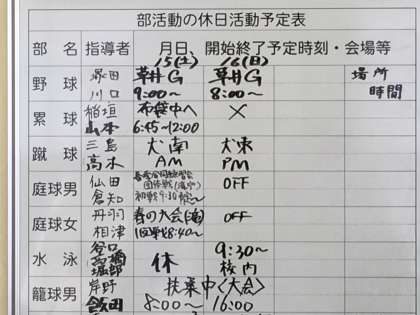 部活動の休日活動予定表
部 名 指導者 月日、開始終了予定時刻・会場等
15(土) 16(日)
野 球 草井G 草井G 場所
川口 9:00〜 8:00〜 時間
累 球 稲垣 布袋中へ ×
山本 6:45〜12:00
蹴 球 三島 犬南 犬東
高木 AM PM
庭球男 仙田 OFF
倉知 初戦9:30
庭球女 丹羽 春の大会 OFF
相津 1回戦8:40〜
水 泳 谷口 休 9:30〜
高橋 校内
堀部
籠球男 岸野 扶桑中〈大会〉
飯田 8:00〜16:00